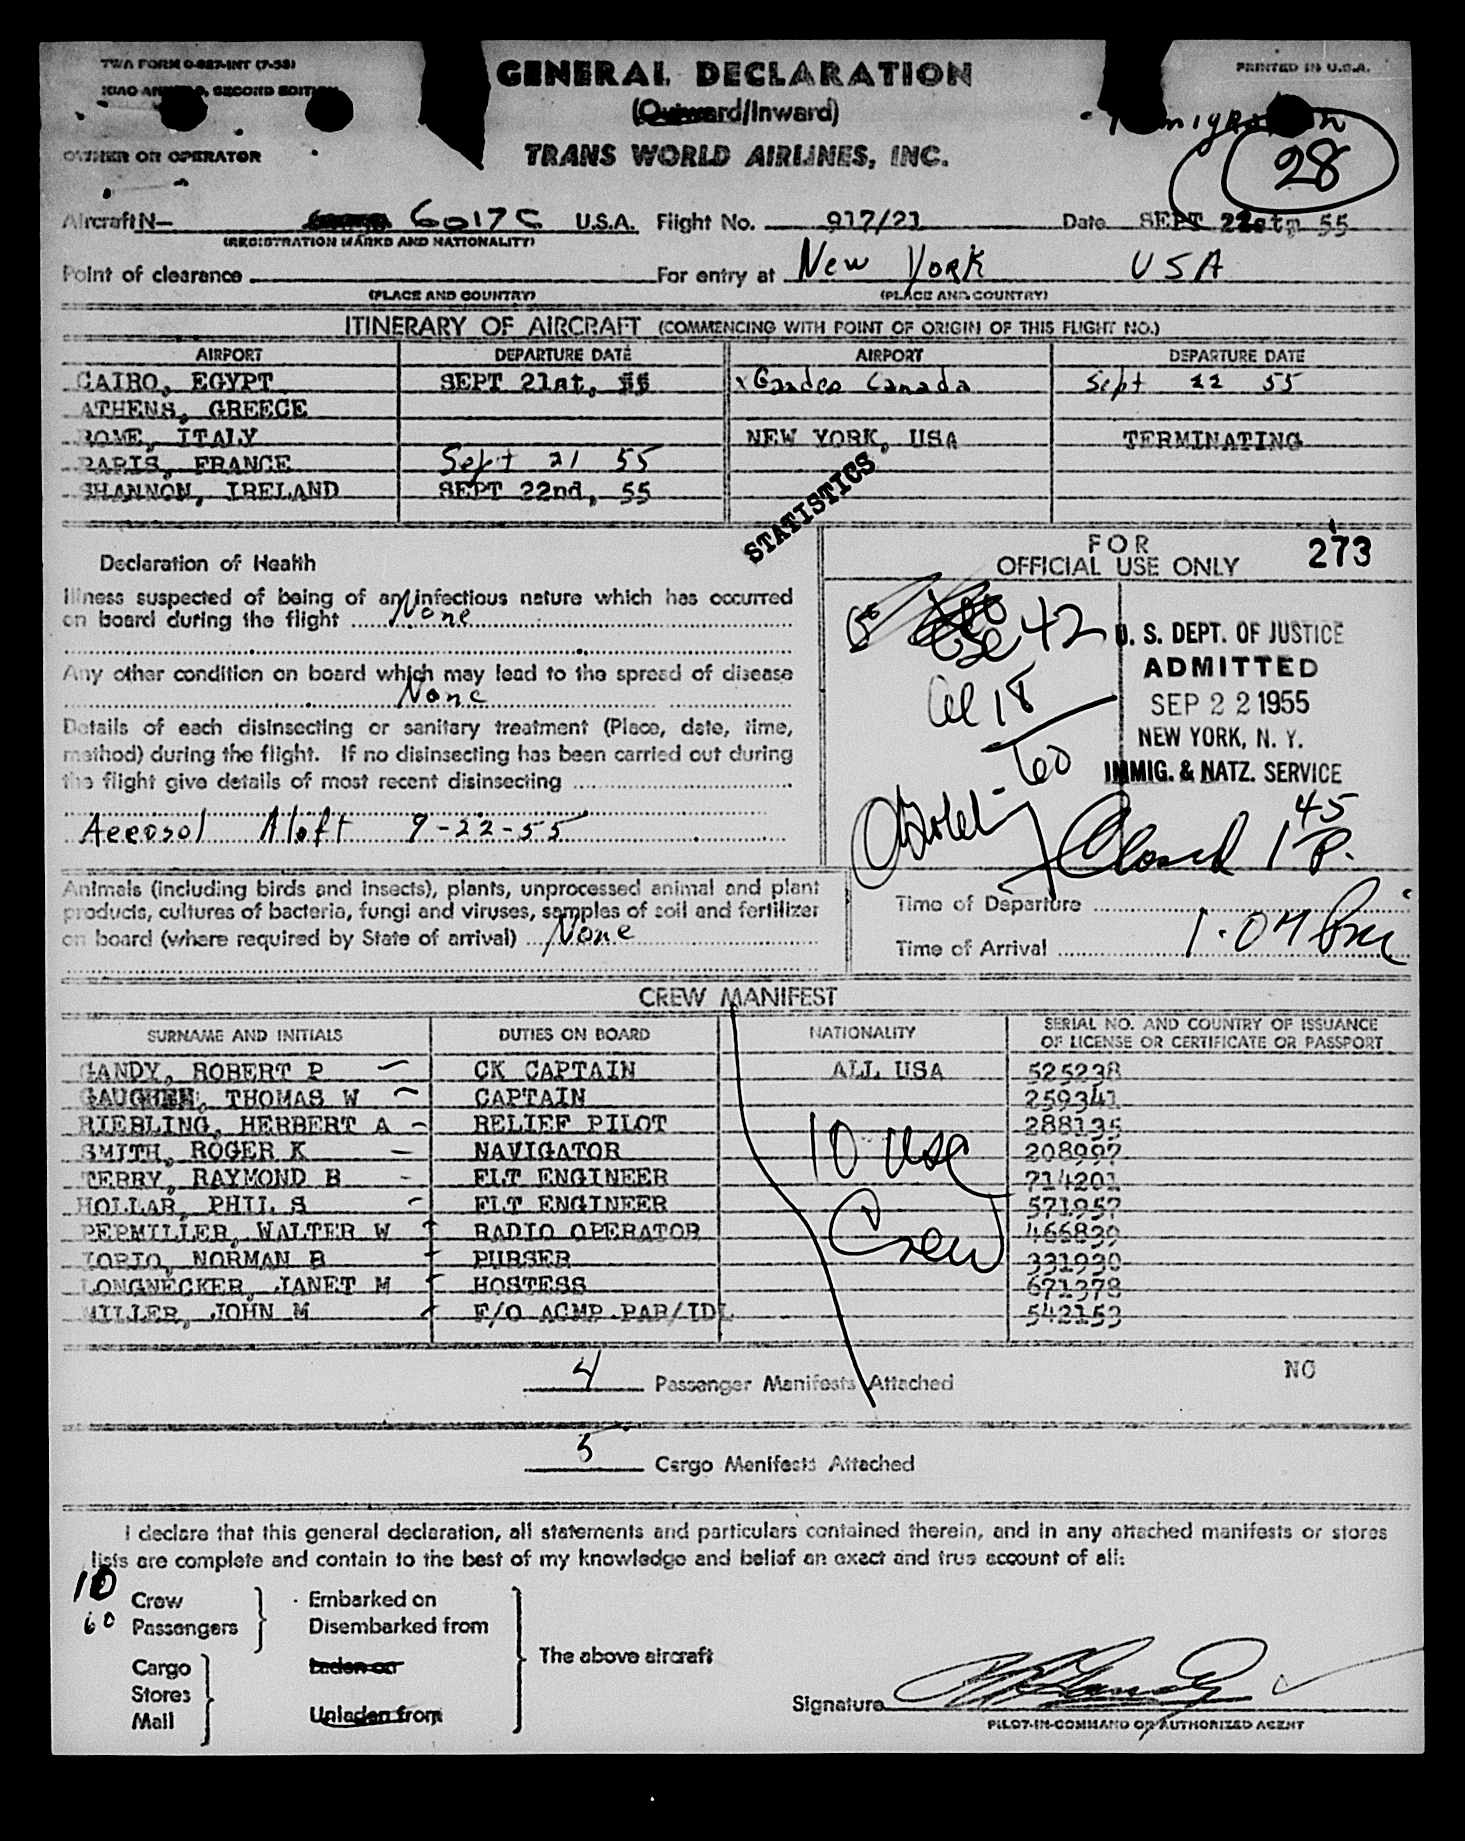 TWA FORM O-827-INT (7-53)
GENERAL DECLARATION
PRINTED IN U.S.A.
SECOND EDITION
(Outward/Inward)
28
OWNER OR OPERATOR
TRANS WORLD AIRLINES, INC.
Aircraft N- 6017C U.S.A. Flight No. 917/21 Date SEPT 22 55
(REGISTRATION MARKS AND NATIONALITY)
Point of clearance For entry at New York USA
(PLACE AND COUNTRY) (PLACE AND COUNTRY)
ITINERARY OF AIRCRAFT (COMMENCING WITH POINT OF ORIGIN OF THIS FLIGHT NO.)
AIRPORT DEPARTURE DATE AIRPORT DEPARTURE DATE
CAIRO, EGYPT SEPT 21st, 55 x Gander Canada Sept 22 55
ATHENS, GREECE
ROME, ITALY NEW YORK, USA TERMINATING
PARIS, FRANCE Sept 21 55
SHANNON, IRELAND SEPT 22nd, 55
STATISTICS
FOR
OFFICIAL USE ONLY
273
Declaration of Health
Illness suspected of being of an infectious nature which has occurred
on board during the flight None
Any other condition on board which may lead to the spread of disease
None
Details of each disinsecting or sanitary treatment (Place, date, time,
method) during the flight. If no disinsecting has been carried out during
the flight give details of most recent disinsecting
Aerosol Aloft 9-22-55
42
18
60
U. S. DEPT. OF JUSTICE
ADMITTED
SEP 22 1955
NEW YORK, N. Y.
IMMIG. & NATZ. SERVICE
Closed 1 45 P.
Animals (including birds and insects), plants, unprocessed animal and plant
products, cultures of bacteria, fungi and viruses, samples of soil and fertilizer
on board (where required by State of arrival) None
Time of Departure
Time of Arrival 1.04 Pm
CREW MANIFEST
SURNAME AND INITIALS DUTIES ON BOARD NATIONALITY SERIAL NO. AND COUNTRY OF ISSUANCE
OF LICENSE OR CERTIFICATE OR PASSPORT
GANDY, ROBERT P CK CAPTAIN ALL USA 525238
GAUGHEN, THOMAS W CAPTAIN 259341
RIEBLING, HERBERT A RELIEF PILOT 288135
SMITH, ROGER K NAVIGATOR 208997
TERRY, RAYMOND B FLT ENGINEER 714201
HOLLAR, PHIL S FLT ENGINEER 571957
PEPMILLER, WALTER W RADIO OPERATOR 466839
IORIO, NORMAN B PURSER 331930
LONGNECKER, JANET M HOSTESS 671378
MILLER, JOHN M F/O ACMP PAR/IDL 542153
10 usc
Crew
4 Passenger Manifests Attached
NO
5 Cargo Manifests Attached
I declare that this general declaration, all statements and particulars contained therein, and in any attached manifests or stores
lists are complete and contain to the best of my knowledge and belief an exact and true account of all:
10 Crew Embarked on
60 Passengers Disembarked from
The above aircraft
Cargo Laden on
Stores
Mail Unladen from
Signature
PILOT-IN-COMMAND OR AUTHORIZED AGENT